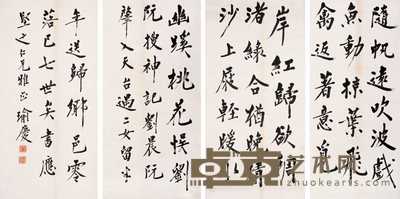 隨帆遠吹波戲
魚動掠葉飛
禽返著意覓
岸紅歸欲
渚綠合猶晚
沙上屐輕暖
幽蹊桃花悮劉
阮搜神記劉晨阮
肇入天台遇二女留半
年送歸鄉邑零
落已七世矣書應
堅之仁兄雅正